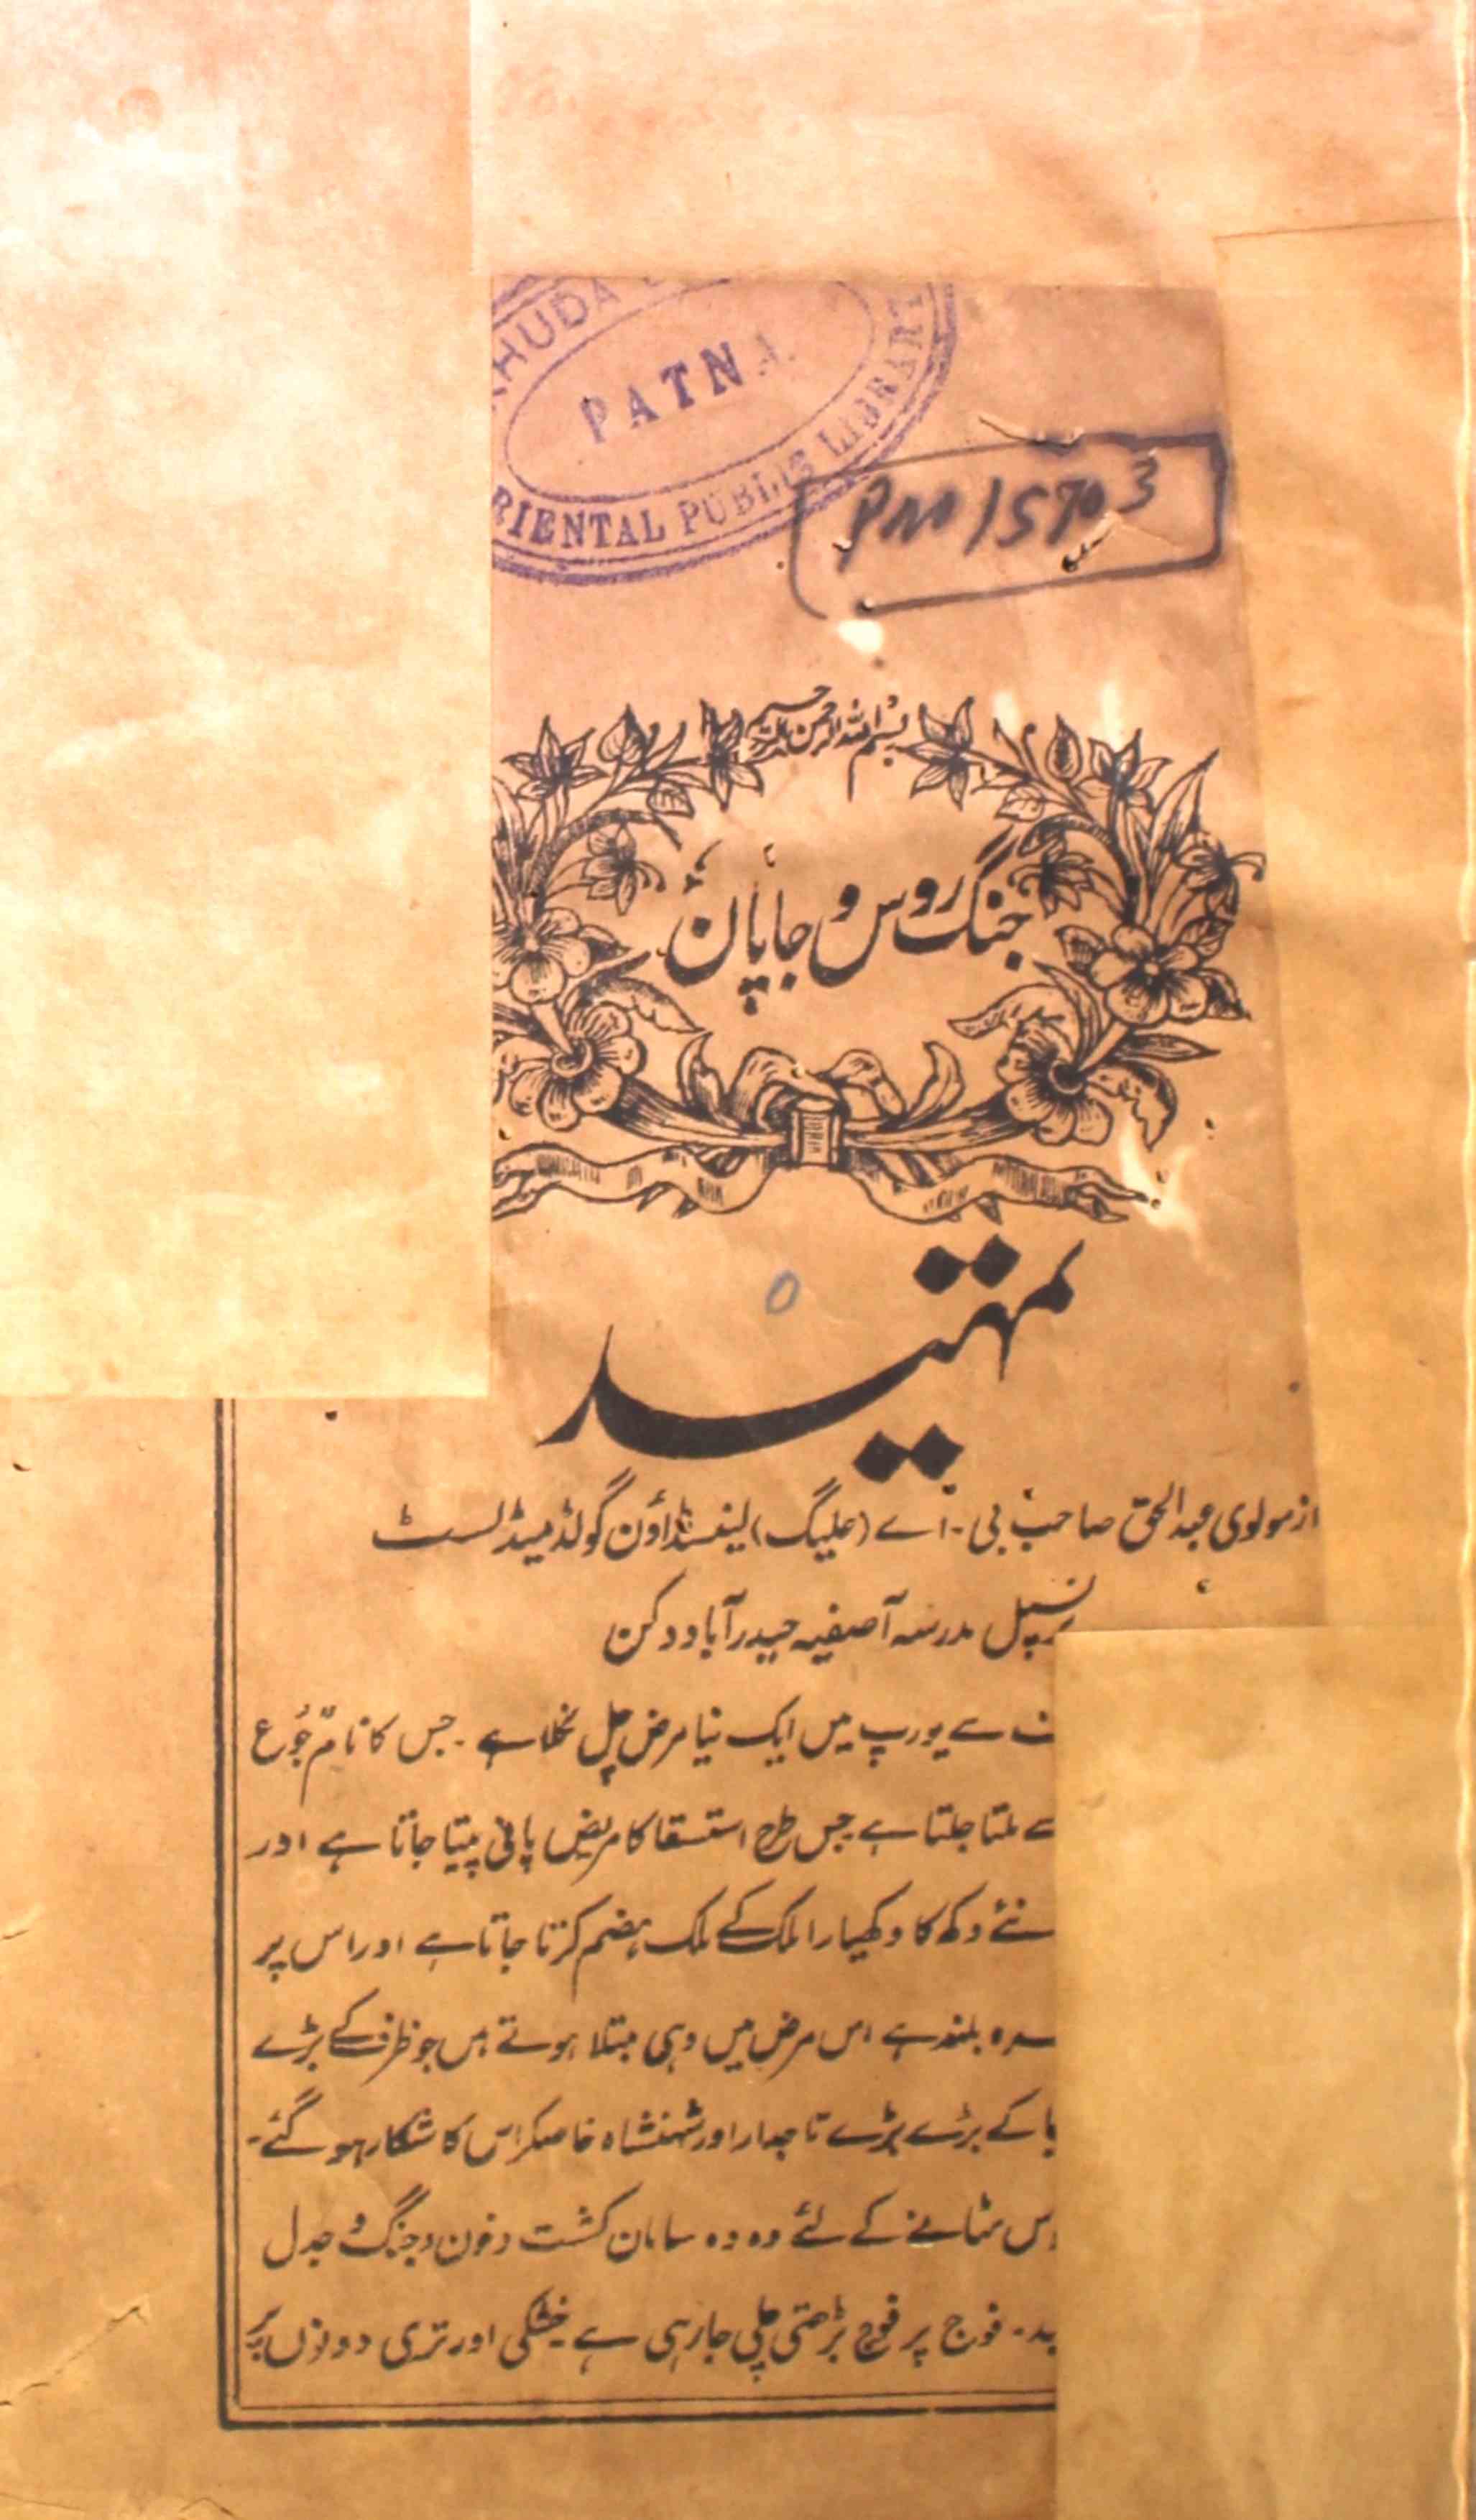 KHUDA
PATNA
ORIENTAL PUBLIC LIBRARY
15703
بسم اللہ الرحمن الرحیم
جنگ روس و جاپان
تمہید
از مولوی عبدالحق صاحب بی - اے (علیگ) لینسڈاؤن گولڈ میڈلسٹ
پرنسپل مدرسہ آصفیہ حیدرآباد دکن
سے یورپ میں ایک نیا مرض چل نکلا ہے - جس کا نام جُوع
سے ملتا جلتا ہے جس طرح استسقا کا مریض پانی پیتا جاتا ہے اور
نئے دکھ کا دکھیارا ملک کے ملک ہضم کرتا جاتا ہے اور اس پر
بلند ہے اس مرض میں وہی مبتلا ہوتے ہیں جو ظرف کے بڑے
کے بڑے بڑے تاجدار اور شہنشاہ خاصکر اس کا شکار ہو گئے -
مٹانے کے لئے وہ وہ سامان کشت و خون و جنگ و جدل
فوج پر فوج بڑھتی چلی جا رہی ہے خشکی اور تری دونوں پر